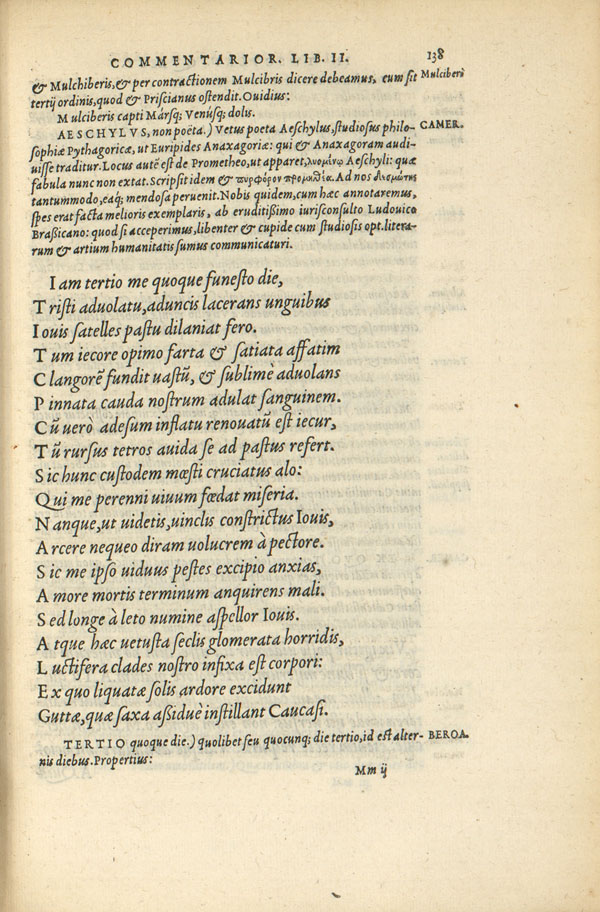 COMMENTARIOR. LIB. II. 138
& Mulchiberis, & per contractionem Mulcibris dicere debeamus, cum sit Mulciberi
tertij ordinis, quod & Priscianus ostendit. Ouidius:
Mulciberis capti Marsq; Venusq; dolis.
AESCHYLVS, non poëta.) Vetus poeta Aeschylus, studiosus philo- CAMER.
sophiæ Pythagoricæ, ut Euripides Anaxagoriæ: qui & Anaxagoram audi-
uisse traditur. Locus autē est de Prometheo, ut apparet, λυομένῳ Aeschyli: quæ
fabula nunc non extat. Scripsit idem & πυρφόρον προμηθέα. Ad nos δεσμώτης
tantummodo, eaq; mendosa peruenit. Nobis quidem, cum hæc annotaremus,
spes erat facta melioris exemplaris, ab eruditißimo iurisconsulto Ludouico
Braßicano: quod si acceperimus, libenter & cupide cum studiosis opt. litera-
rum & artium humanitatis sumus communicaturi.
Iam tertio me quoque funesto die,
Tristi aduolatu, aduncis lacerans unguibus
Iouis satelles pastu dilaniat fero.
Tum iecore opimo farta & satiata affatim
Clangorē fundit uastū, & sublimè aduolans
Pinnata cauda nostrum adulat sanguinem.
Cū uerò adesum inflatu renouatū est iecur,
Tū rursus tetros auida se ad pastus refert.
Sic hunc custodem mœsti cruciatus alo:
Qui me perenni uiuum fœdat miseria.
Nanque, ut uidetis, uinclis constrictus Iouis,
Arcere nequeo diram uolucrem à pectore.
Sic me ipso uiduus pestes excipio anxias,
Amore mortis terminum anquirens mali.
Sed longè à leto numine aspellor Iouis.
Atque hæc uetusta seclis glomerata horridis,
Luctifera clades nostro infixa est corpori:
Ex quo liquatæ solis ardore excidunt
Guttæ, quæ saxa aßiduè instillant Caucasi.
TERTIO quoque die.) quolibet seu quocunq; die tertio, id est alter- BEROA.
nis diebus. Propertius:
Mm ij